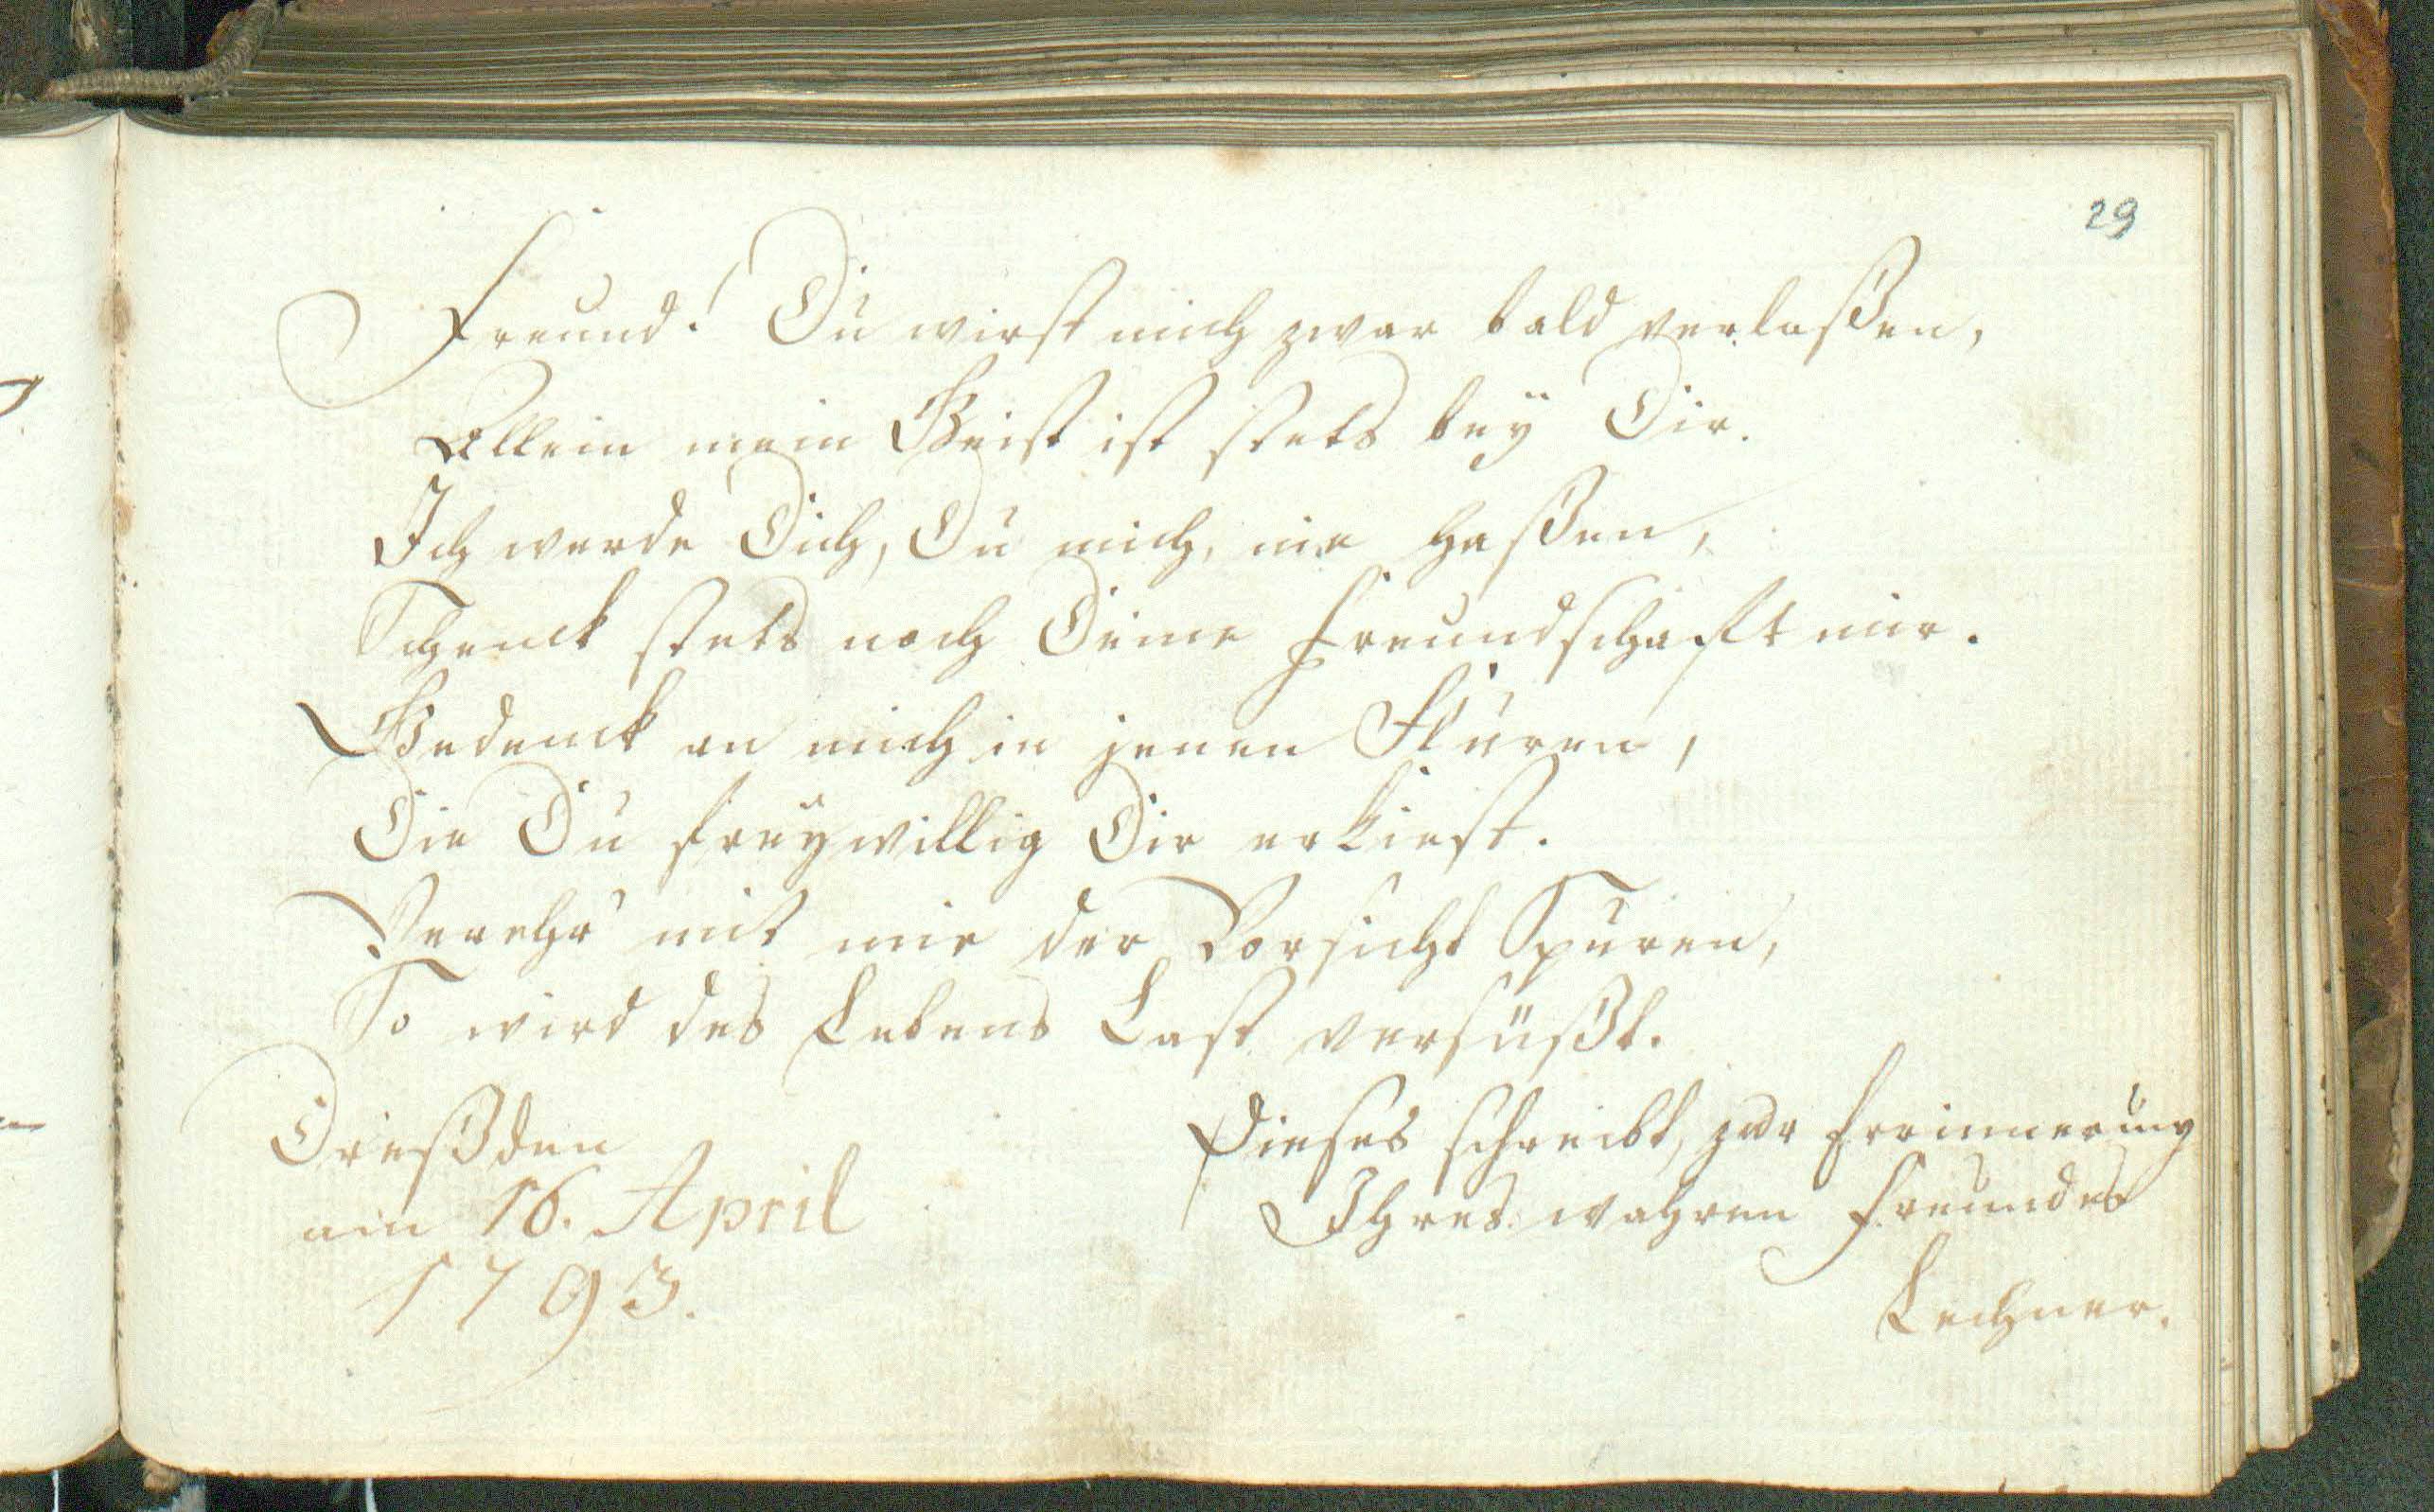 29
Freund! Du wirst mich zwar bald verlaßen,
Allein mein Geist ist stets bey Dir.
Ich werde Dich, Du mich, nie haßen,
Schenck stets noch Deine Freundschaft mir.
Gedenck an mich in jenen Fluren,
Die Du freywillig Dir erkiest.
Verehr' mit mir der Vorsicht Spuren,
So wird des Lebens Last versüßt.
Dreßden
am 16. April
1793.
Dieses schreibt, zur Erinnerung
Ihres wahren Freundes
Lechner.